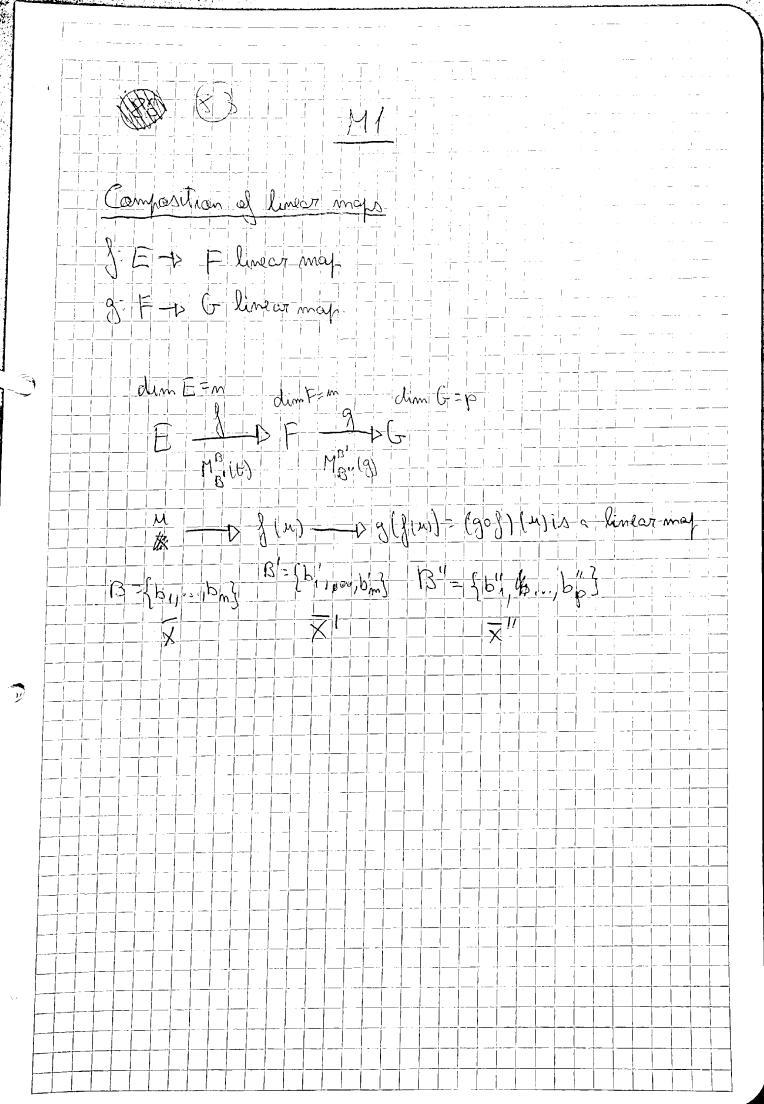 M1
Composition of linear maps
f: E → F linear map
g: F → G linear map
dim E = n dim F = m dim G = p
E f→ F g→ G
M^B_{B'}(f) M^{B'}_{B''}(g)
u → f(u) → g(f(u)) = (g∘f)(u) is a linear map
B = {b₁, ..., bₙ} B' = {b'₁, ..., b'ₘ} B'' = {b''₁, ..., b''ₚ}
x̄ x̄' x̄''